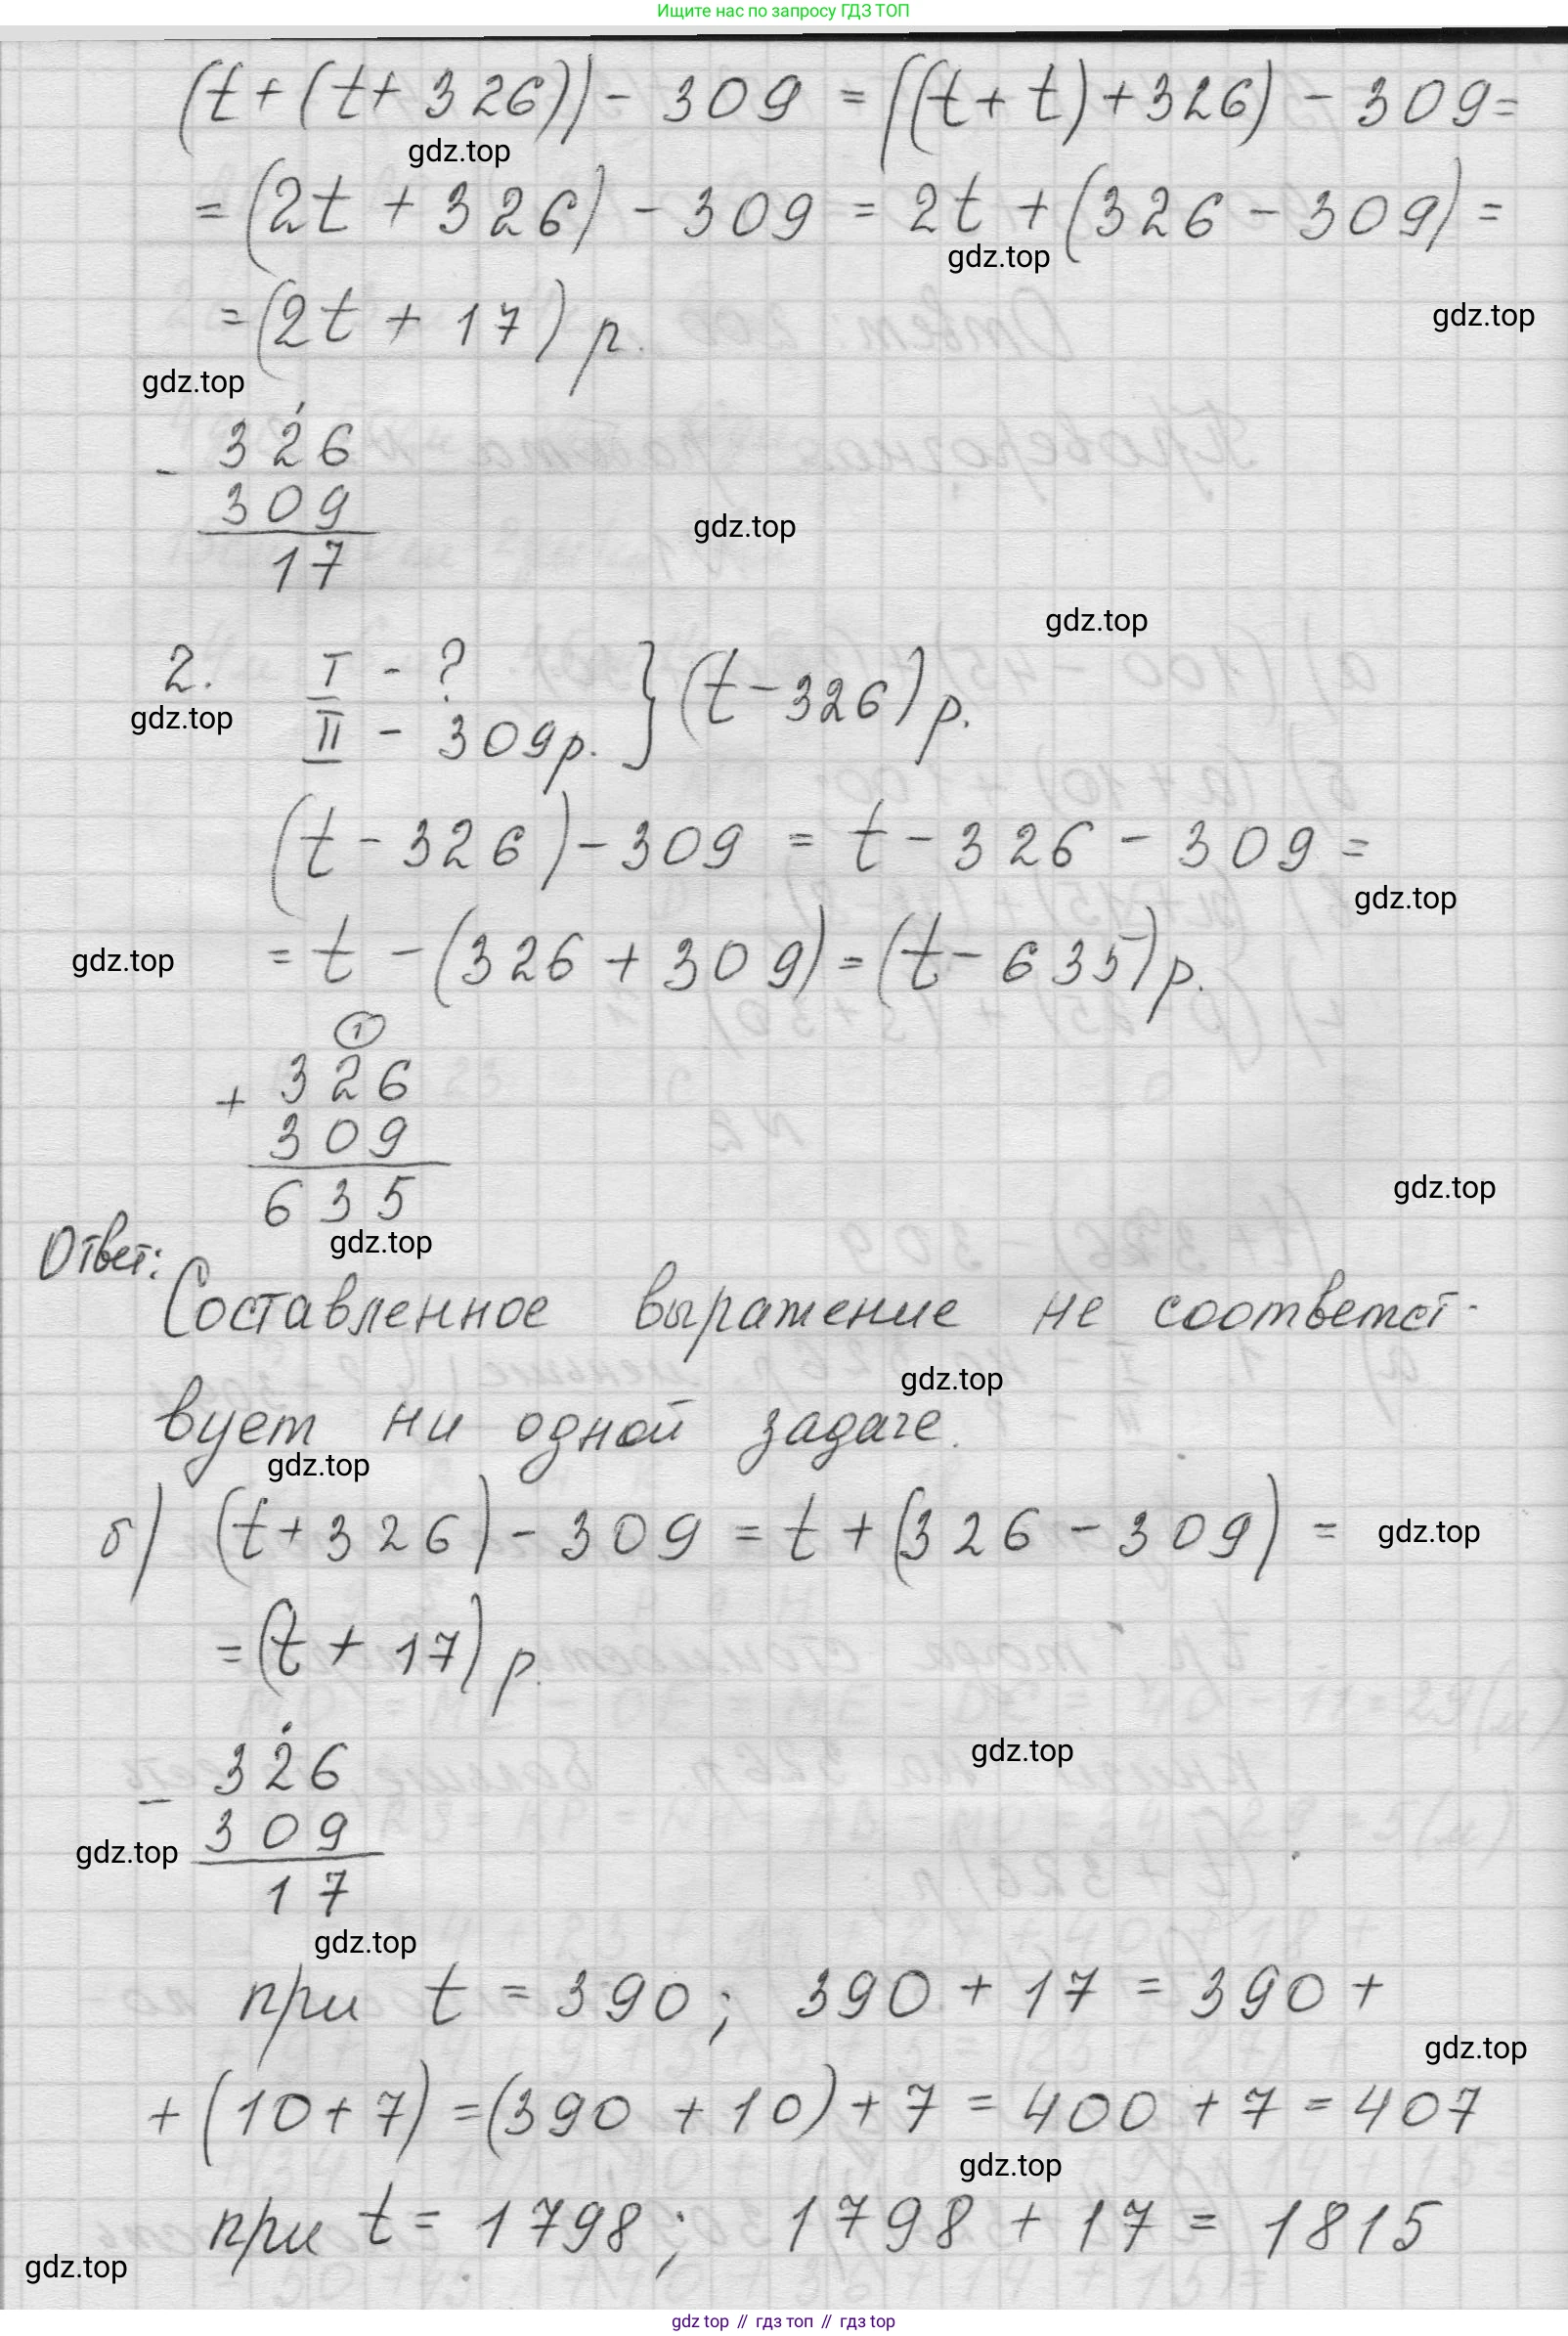 Ищите нас по запросу ГДЗ ТОП
(t + (t + 326)) - 309 = ((t + t) + 326) - 309 =
gdz.top
= (2t + 326) - 309 = 2t + (326 - 309) =
gdz.top
= (2t + 17) р.
gdz.top
gdz.top
- 326
309
17
gdz.top
gdz.top
2. I - ? } (t - 326) р.
gdz.top
II - 309 р.
(t - 326) - 309 = t - 326 - 309 =
gdz.top
gdz.top
= t - (326 + 309) = (t - 635) р.
1
+ 326
309
635
gdz.top
gdz.top
Ответ:
Составленное выражение не соответст-
gdz.top
вует ни одной задаче.
gdz.top
б) (t + 326) - 309 = t + (326 - 309) =
gdz.top
= (t + 17) р.
gdz.top
- 326
309
gdz.top
17
gdz.top
при t = 390; 390 + 17 = 390 +
gdz.top
+ (10 + 7) = (390 + 10) + 7 = 400 + 7 = 407
gdz.top
при t = 1798; 1798 + 17 = 1815
gdz.top
gdz top // гдз топ // гдз top